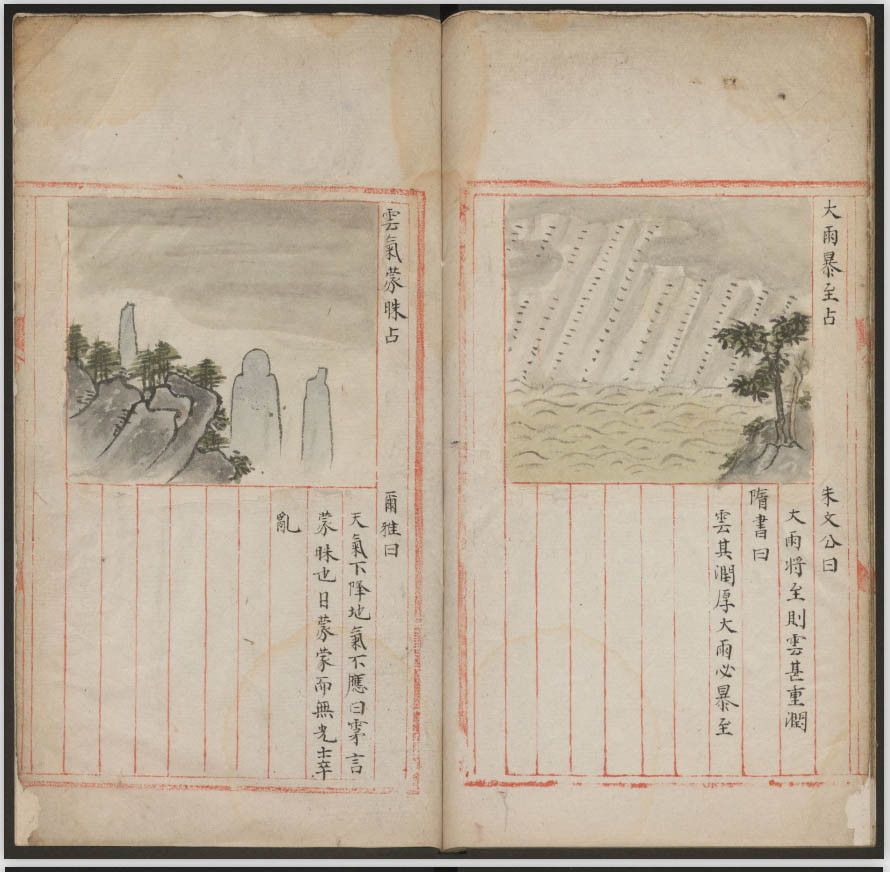 大雨暴至占
朱文公曰
大雨將至則雲甚重潤
隋書曰
雲其潤厚大雨必暴至
雲氣蒙昧占
爾雅曰
天氣下降地氣不應曰雺言
蒙昧也日蒙蒙而無光士卒
亂